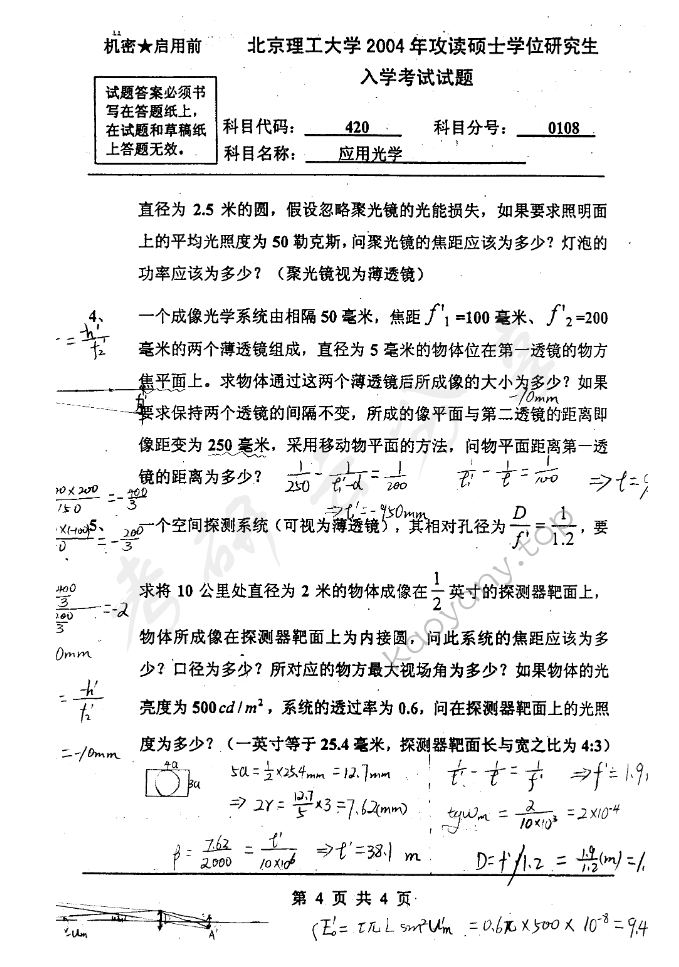 机密★启用前
北京理工大学 2004 年攻读硕士学位研究生
入学考试试题
试题答案必须书
写在答题纸上，
在试题和草稿纸
上答题无效。
科目代码： 420 科目分号： 0108
科目名称： 应用光学
直径为 2.5 米的圆，假设忽略聚光镜的光能损失，如果要求照明面
上的平均光照度为 50 勒克斯，问聚光镜的焦距应该为多少？灯泡的
功率应该为多少？（聚光镜视为薄透镜）
4、 一个成像光学系统由相隔 50 毫米，焦距 f'1 =100 毫米、 f'2 =200
= h'/f2'
毫米的两个薄透镜组成，直径为 5 毫米的物体位在第一透镜的物方
焦平面上。求物体通过这两个薄透镜后所成像的大小为多少？如果
-10mm
要求保持两个透镜的间隔不变，所成的像平面与第二透镜的距离即
像距变为 250 毫米，采用移动物平面的方法，问物平面距离第一透
镜的距离为多少？ 1/250 - 1/(l1'-d) = 1/200 1/l1' - 1/l = 1/100 ⇒ l=
⇒ l1'=-950mm
5、 一个空间探测系统（可视为薄透镜），其相对孔径为 D/f' = 1/1.2，要
求将 10 公里处直径为 2 米的物体成像在 1/2 英寸的探测器靶面上，
=-2
物体所成像在探测器靶面上为内接圆，问此系统的焦距应该为多
0mm
少？口径为多少？所对应的物方最大视场角为多少？如果物体的光
= h'/f2'
亮度为 500cd / m²，系统的透过率为 0.6，问在探测器靶面上的光照
=-10mm
度为多少？（一英寸等于 25.4 毫米，探测器靶面长与宽之比为 4:3）
4a
3a
5a = 1/2 ×25.4mm = 12.7mm
1/l' - 1/l = 1/f' ⇒ f'= 1.9
⇒ 2r = 12.7/5 ×3 = 7.62(mm)
tgωm = 2/(10×10³) = 2×10⁻⁴
β = 7.62/2000 = l'/(10×10⁶) ⇒ l'=38.1 m
D=f'/1.2 = 1.9/1.2 (m) =1.
第 4 页 共 4 页
-Um A'
E0'= τπL sin²U'm = 0.6π×500× 10⁻⁸ = 9.4
考研云分享
kaoyany.top